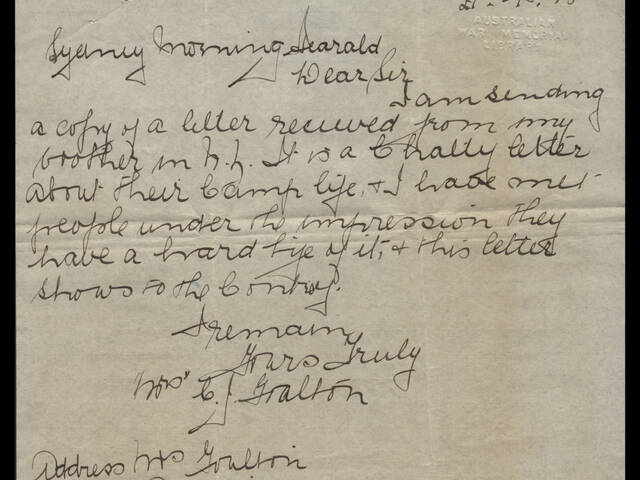 AUSTRALIAN
WAR MEMORIAL
LIBRARY
Sydney Morning Hearald
Dear Sir
I am sending
a copy of a letter recieved from my
brother in N.G. It is a Chatty letter
about their Camp life, & I have met
people under the impression they
have a hard life of it, & this letter
shows to the Contray.
I remain
Yours Truly
Mrs C. J. Goulton
Address Mrs Goulton